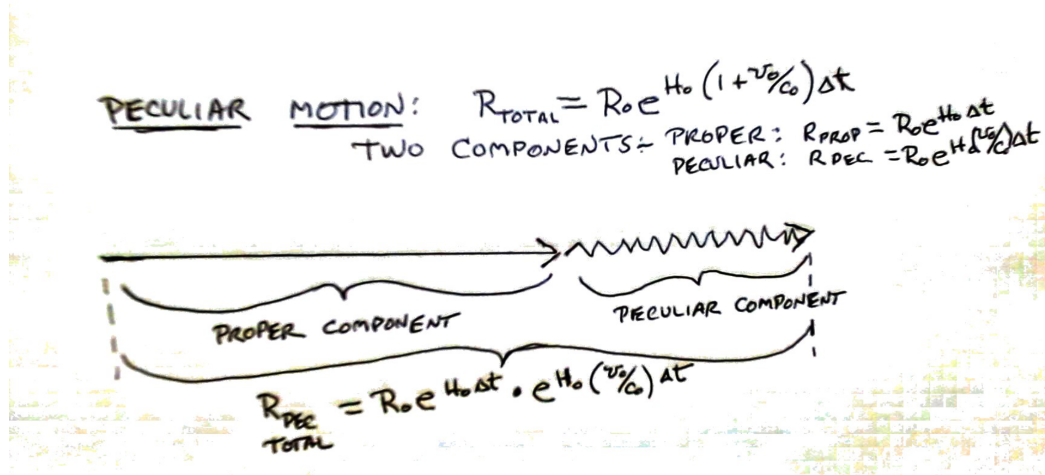 PECULIAR MOTION: R_TOTAL = R₀e^H₀(1+v₀/c₀)Δt
TWO COMPONENTS:- PROPER: R_PROP = R₀e^H₀Δt
PECULIAR: R_PEC = R₀e^H₀(v₀/c₀)Δt
PROPER COMPONENT
PECULIAR COMPONENT
R_PEC TOTAL = R₀e^H₀Δt · e^H₀(v₀/c₀)Δt